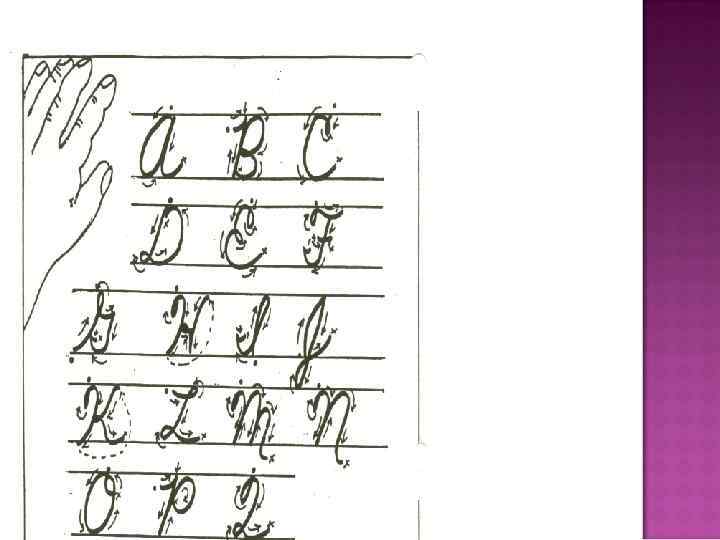 A B C
D E F
G H I J
K L M N
O P Q